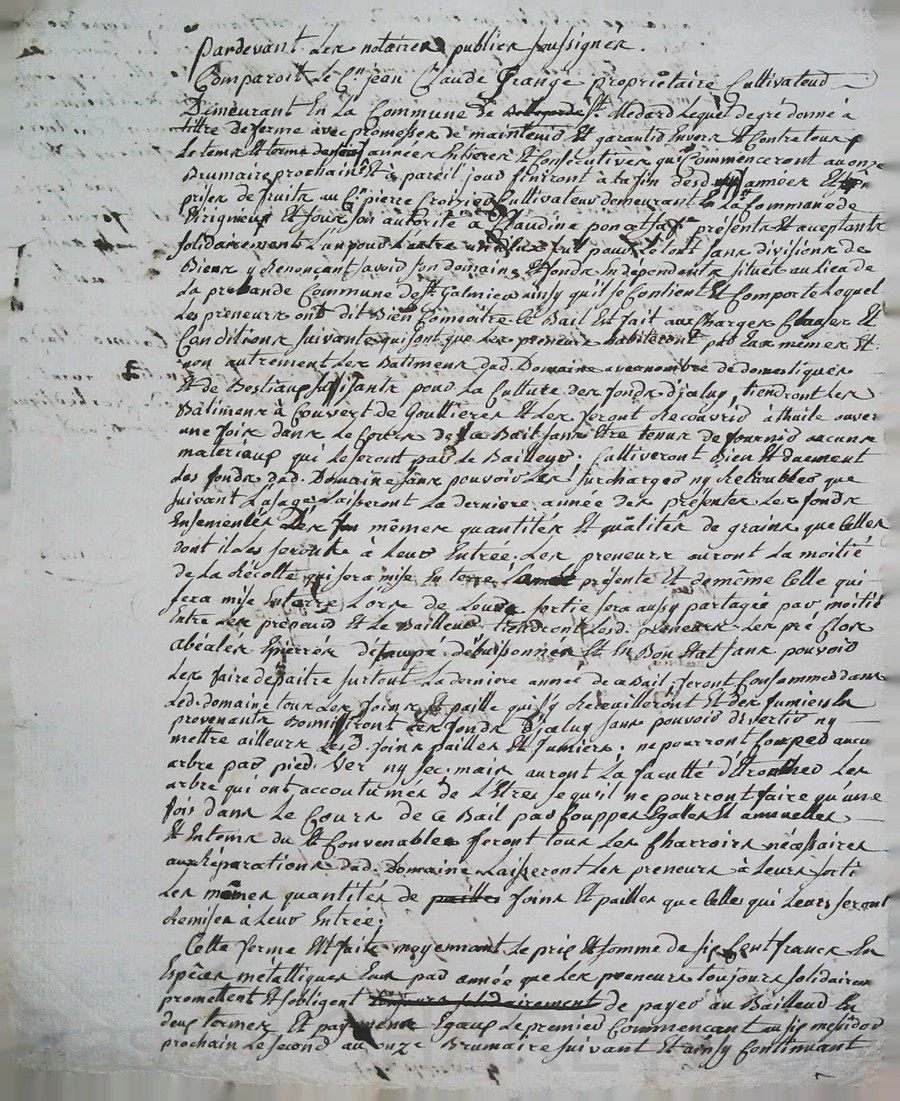 Pardevant les notaires publics soussignés.
Comparoit le Cn jean Claude Grange propriétaire Cultivateur
Demeurant En la Commune de St Medard Lequel de gré donne à
tittre de ferme avec promesses de maintenir Et garantir Envers Et Contre tous
Le tems Et terme de années Entieres Et Consécutives qui Commenceront au onze
Brumaire prochain Et à pareil jour finiront à la fin desd années Et
prises de fruits au Cn pierre Cultivateur demeurant En la Commune de
Et sous son autorité à Claudine présents Et acceptants
solidairement L'un pour L'autre un d'Eux seul pour le tout sans division de
Biens y Renonçant savoir son domaine Et fonds Indépendents situés au Lieu de
La prebande Commune de St Galmier ainsy qu'il se Contient Et Comporte Lequel
Les preneurs ont dit Bien Connoitre. Ce Bail Est fait aux Charges Clauses Et
Conditions suivantes qui sont que Les preneurs habiteront par Eux mêmes Et
non autrement Les Batimens dud. Domaine avec nombre de domestiques
Et de Bestiaux suffisants pour La Culture des fonds d'jceluy, tiendront Les
Batimens à Couvert de Gouttières Et Les feront Recouvrir à thuile
une fois dans Le Cours de Ce Bail sans Etre tenus de fournir aucuns
matériaux qui Le seront par Le Bailleur. Cultiveront Bien Et duement
Les fonds dud. Domaine sans pouvoir Les surcharger ny Retroubler que
suivant L'usage Laisseront La derniere année des présentes Les fonds
Ensemencés Des mêmes quantités Et qualités de grains que Celles
dont il Les à Leur Entrée. Les preneurs auront La moitié
de La Récolte qui sera mise En terre présente Et de même Celle qui
sera mise En terre Lors de Leur sortie sera aussy partagée par moitié
Entre Les preneurs Et Le Bailleur. tiendront Lesd. preneurs Les pré Clos
abéalés Epierrés débuissonnés Et En Bon Etat sans pouvoir
Les faire dépaitre surtout La derniere année de ce Bail, feront Consommer dans
Led. domaine tous Les foins Et paille qui s'y Recueilleront Et des fumiers En
provenants Les fonds d'jceluy sans pouvoir divertir ny
mettre ailleurs Lesd. foins pailles Et fumiers. ne pourront Couper aucun
arbre par pied. Ver ny sec. mais auront La faculté Les
arbre qui ont accoutumés de L'Etre Ce qu'il ne pourront faire qu'une
fois dans Le Cours de Ce Bail par Couppes Egales Et annuelles
Et En tems du Et Convenables feront tous Les Charroirs nécessaires
aux Réparations dud. Domaine. Laisseront Les preneurs à Leurs sorti
Les mêmes quantités de foins Et pailles que Celles qui Leurs seront
Remises à Leur Entrée;
Cette ferme Est faite moyennant Le prix Et somme de six Cent francs En
Espèces métalliques par année que Les preneurs toujours solidaires
promettent Et s'obligent toujours solidairement de payer au Bailleur En
deux termes Et payements Egaux Le premier Commencant au six messidor
prochain Le second au onze Brumaire suivant Et ainsy Continuant